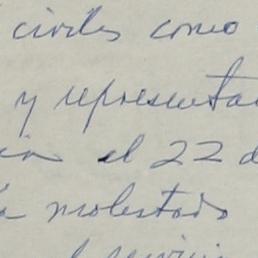 civiles como
y representa
el 22 d
molestado